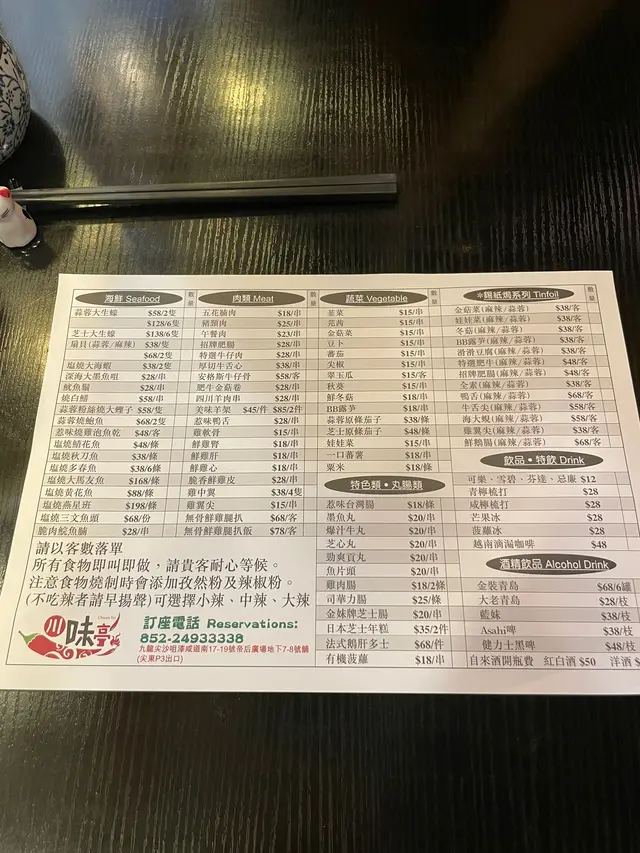 海鮮 Seafood 數量
蒜蓉大生蠔 $58/2隻
$128/6隻
芝士大生蠔 $138/6隻
扇貝(蒜蓉/麻辣) $38/隻
$68/2隻
塩燒大海蝦 $38/2隻
深海大墨魚咀 $28/串
魷魚鬚 $28/串
燒白鱔 $58/串
蒜蓉粉絲燒大蟶子 $58/隻
蒜蓉鮑魚 $68/2隻
惹味燒雞泡魚乾 $48/客
塩燒鯖花魚 $48/條
塩燒秋刀魚 $38/條
塩燒多春魚 $38/6條
塩燒大馬友魚 $168/條
塩燒黃花魚 $88/條
塩燒燕星班 $198/條
塩燒三文魚頭 $68/份
脆肉鯇魚腩 $28/串
肉類 Meat 數量
五花腩肉 $18/串
豬頸肉 $25/串
午餐肉 $23/串
招牌肥腸 $28/串
特選牛仔肉 $28/串
厚切牛舌心 $38/串
安格斯牛仔骨 $58/客
肥牛金菇卷 $28/串
四川羊肉串 $28/串
美味羊架 $45/件 $85/2件
惹味鴨舌 $28/串
雞軟骨 $15/串
鮮雞腎 $18/串
鮮雞肝 $18/串
鮮雞心 $18/串
脆香鮮雞皮 $28/串
雞中翼 $38/4隻
雞翼尖 $15/串
無骨鮮雞腿扒 $68/客
無骨鮮雞腿扒飯 $78/客
蔬菜 Vegetable 數量
韮菜 $15/串
芫茜 $15/串
金菇菜 $15/串
豆卜 $15/串
蕃茄 $15/串
尖椒 $15/串
翠玉瓜 $15/客
秋葵 $15/串
鮮冬菇 $18/串
BB露笋 $18/串
蒜蓉原條茄子 $38/條
芝士原條茄子 $48/條
娃娃菜 $15/串
一口蕃薯 $18/串
粟米 $18/條
特色類・丸腸類
惹味台灣腸 $18/條
墨魚丸 $20/串
爆汁牛丸 $20/串
芝心丸 $20/串
勁爽貢丸 $20/串
魚片頭 $20/串
雞肉腸 $18/2條
司華力腸 $25/條
金妹牌芝士腸 $20/串
日本芝士年糕 $35/2件
法式鵝肝多士 $68/件
有機菠蘿 $18/串
✻錫紙焗系列 Tinfoil 數量
金菇菜(麻辣/蒜蓉) $38/客
娃娃菜(麻辣/蒜蓉) $38/客
冬菇(麻辣/蒜蓉) $38/客
BB露笋(麻辣/蒜蓉) $38/客
滑滑豆腐(麻辣/蒜蓉) $38/客
特選肥牛(麻辣/蒜蓉) $48/客
招牌肥腸(麻辣/蒜蓉) $48/客
全素(麻辣/蒜蓉) $38/客
鴨舌(麻辣/蒜蓉) $68/客
牛舌尖(麻辣/蒜蓉) $58/客
海大蜆(麻辣/蒜蓉) $58/客
雞翼尖(麻辣/蒜蓉) $38/客
鮮鵝腸(麻辣/蒜蓉) $68/客
飲品・特飲 Drink
可樂、雪碧、芬達、忌廉 $12
青檸梳打 $28
咸檸梳打 $28
芒果冰 $28
菠蘿冰 $28
越南滴漏咖啡 $48
酒精飲品 Alcohol Drink
金裝青島 $68/6罐
大老青島 $28/枝
藍妹 $38/枝
Asahi啤 $38/枝
健力士黑啤 $48/枝
自來酒開瓶費 紅白酒 $50 洋酒
請以客數落單
所有食物即叫即做，請貴客耐心等候。
注意食物燒制時會添加孜然粉及辣椒粉。
(不吃辣者請早揚聲)可選擇小辣、中辣、大辣
川味亭
訂座電話 Reservations:
852-24933338
九龍尖沙咀漆咸道南17-19號帝后廣場地下7-8號舖
(尖東P3出口)